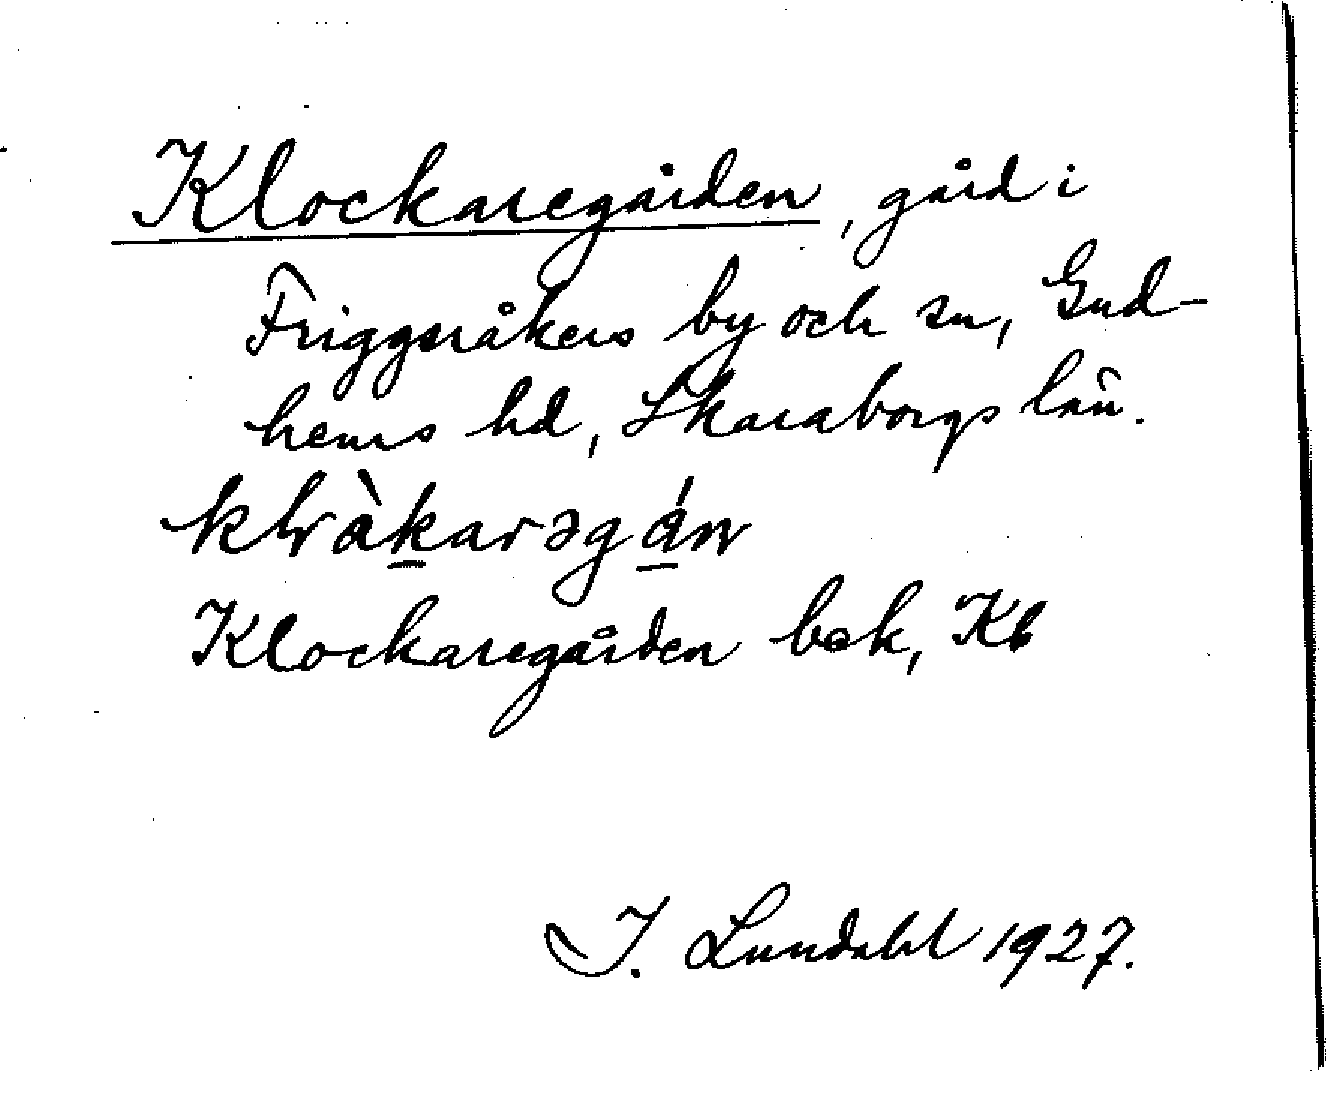 Klockaregården, gård i
Friggeråkers by och sn, Gud-
hems hd, Skaraborgs län.
klràkarəgá̱n
Klockaregården bok, Kb
I. Lundahl 1927.